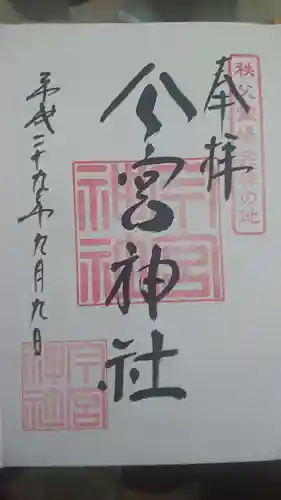 奉拝
秩父霊場発祥の地
今宮神社
今宮神社
平成二十九年九月九日
今宮神社